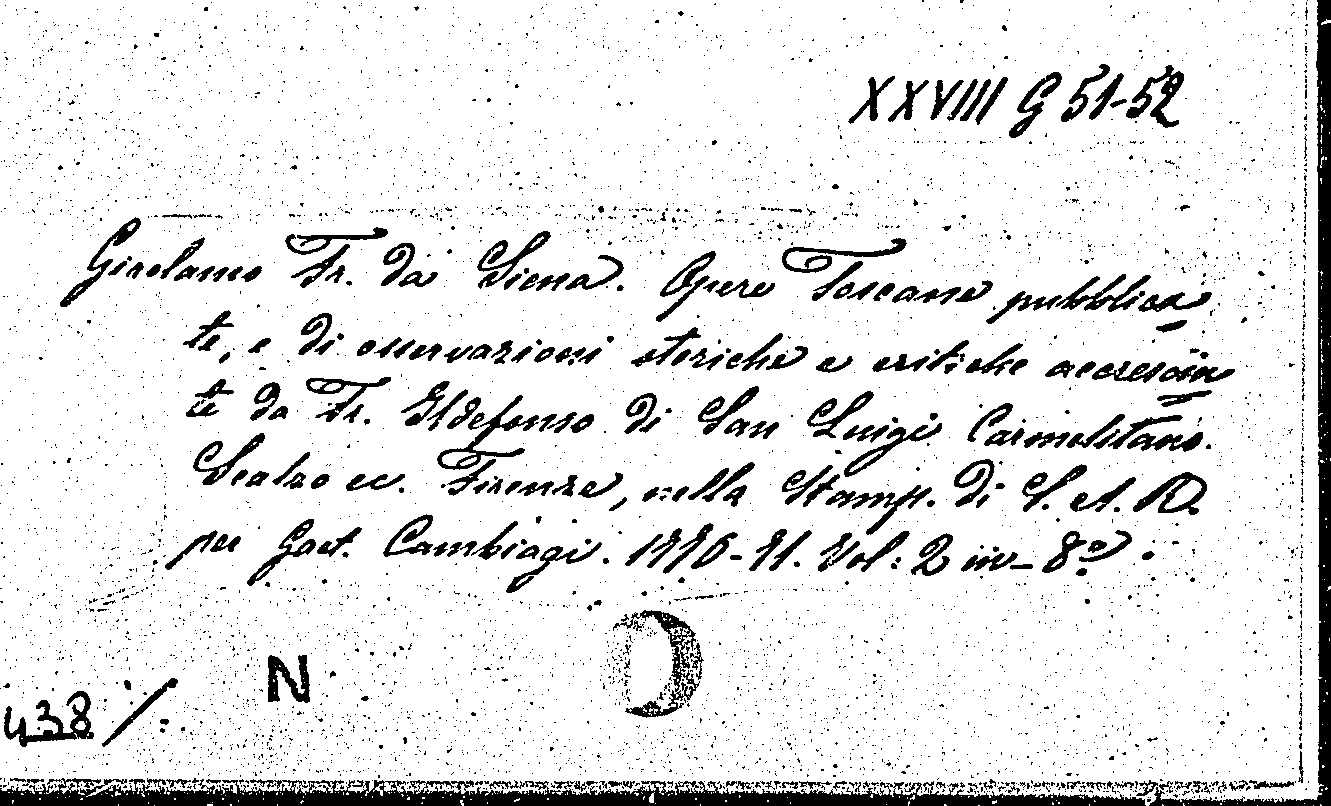 XXVIII G 51-52
Girolamo Fr. da Siena. Opere Toscane pubblica
te, e di osservazioni storiche e critiche accresciu
te da Fr. Ildefonso di San Luigi Carmelitano.
Scalzo ec. Firenze, nella Stamp. di S. A. R.
per Gaet. Cambiagi. 1770-71. Vol: 2 in-8º.
N
438/